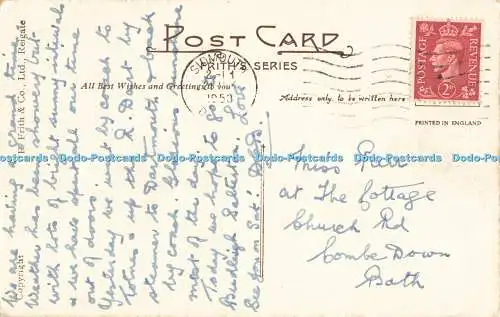 POST CARD
FRITH'S SERIES
All Best Wishes and Greetings to you
Address only to be written here
POSTAGE REVENUE
2D
PRINTED IN ENGLAND
SIDMOUTH
1950
Copyright
H. Frith & Co., Ltd., Reigate
We are having a grand time
Weather has been showery but
with lots of bright sunny intervals
& we have spent all our time
out of doors.
Yesterday we went by coach to
Totnes & up the R. Dart by
steamer to Dartmouth & back
by coach. Glorious sunshine
most of the day.
Today we hope to go to
Budleigh Salterton. Love
See you on Sat.
Miss Peer
at The Cottage
Church Rd
Combe Down
Bath
Dodo-Postcards Dodo-Postcards Dodo-Postcards Dodo-Postcards Dodo-Postcards Dodo-Postcards